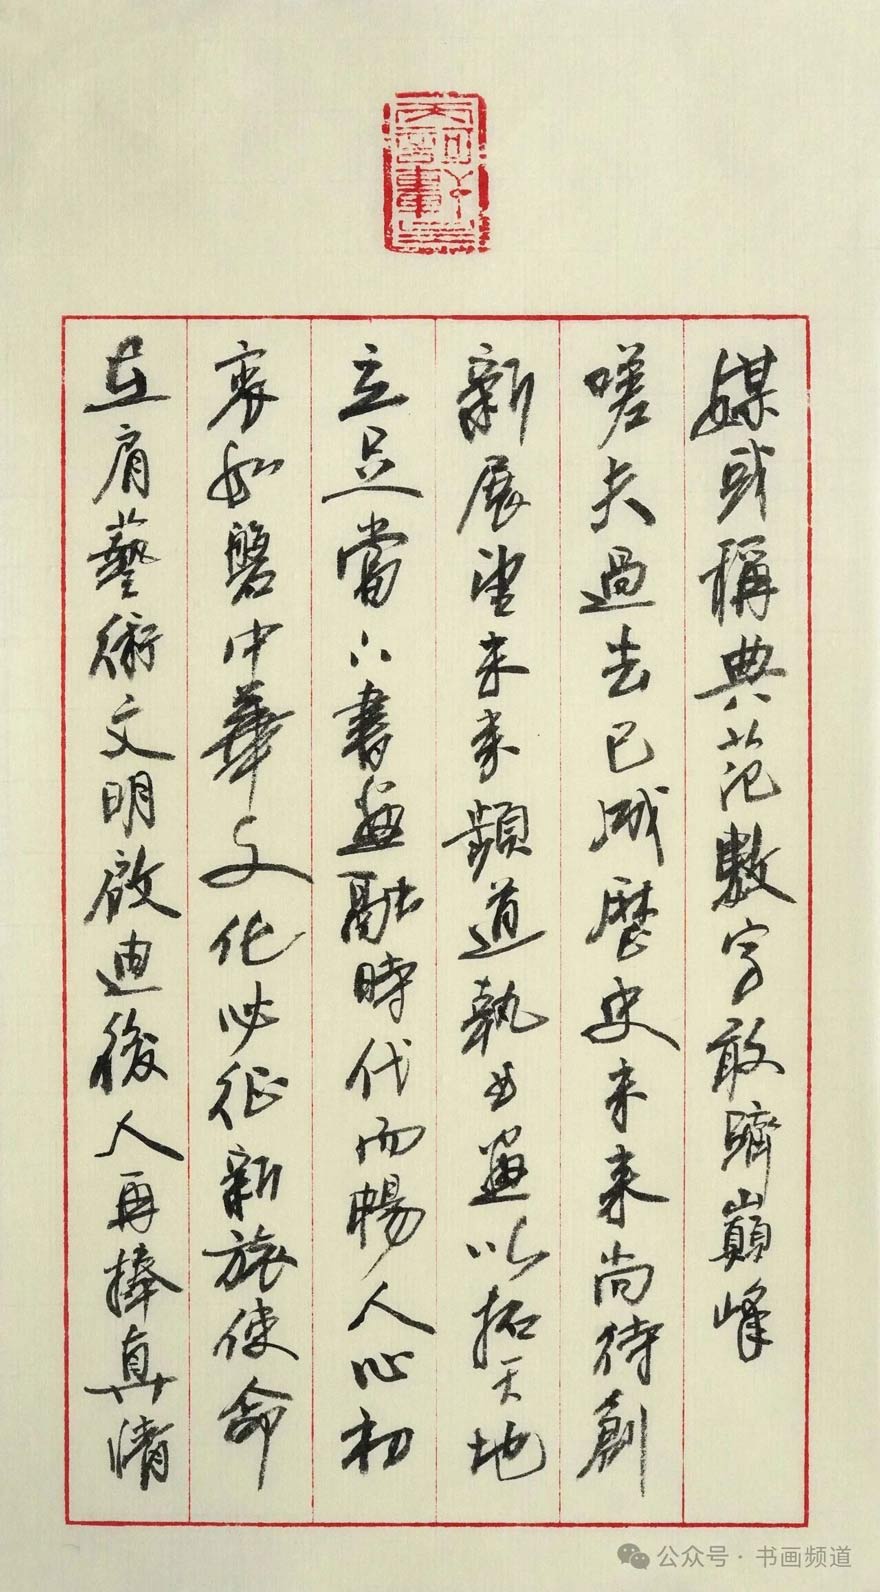 媒或稱典范數字敢躋巔峰
嗟夫過去已成歷史未来尚待創
新展望未来頻道執书畫以拓天地
立足當下書畫融時代而暢人心初
衷如磐中華文化必征新旅使命
在肩藝術文明啟迪後人再捧真情
公众号·书画频道